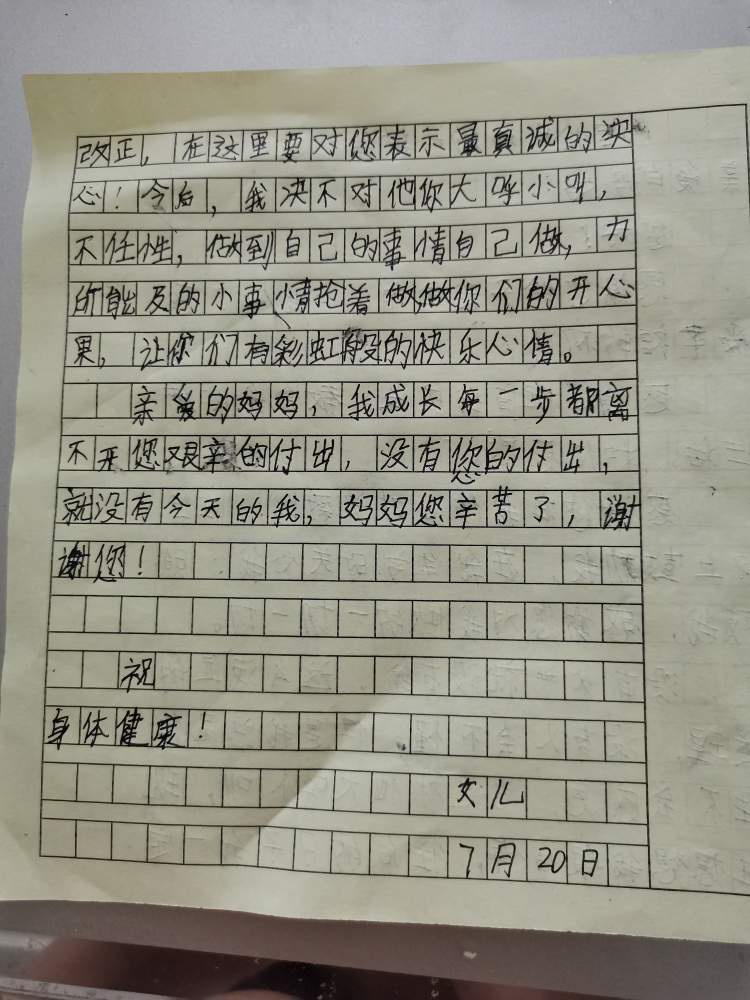 改正，在这里要对您表示最真诚的决
心！今后，我决不对他你大呼小叫，
不任性，做到自己的事情自己做，力
所能及的小事情抢着做，做你们的开心
果，让你们有彩虹般的快乐心情。
亲爱的妈妈，我成长每一步都离
不开您艰辛的付出，没有您的付出，
就没有今天的我，妈妈您辛苦了，谢
谢您！
祝
身体健康！
女儿
7月20日